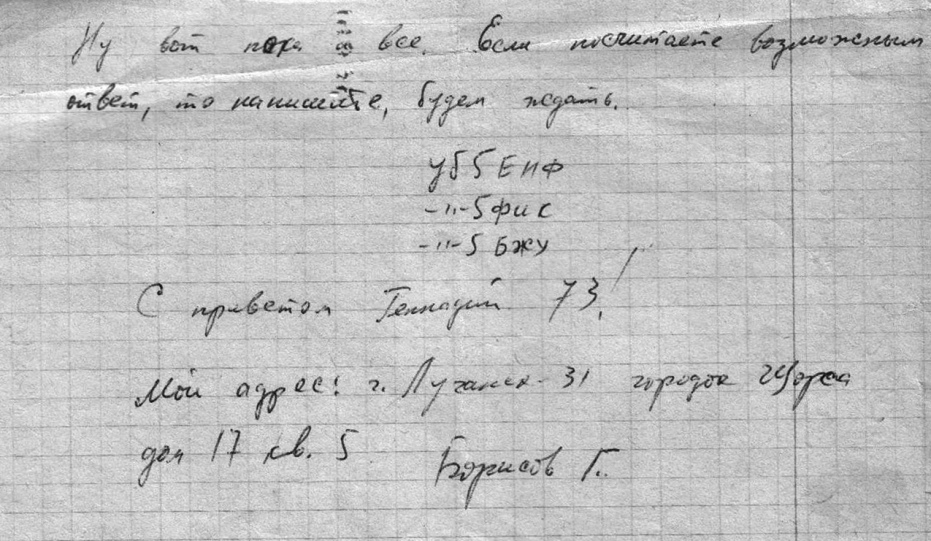 Ну вот пока и все. Если посчитаете возможным
ответ, то напишите, будем ждать.
УБ5ЕПФ
-"-5ФИК
-"-5БЖУ
С приветом Геннадий 73!
Мой адрес: г. Луганск-31 городок Щорса
дом 17 кв. 5
Борисов Г.